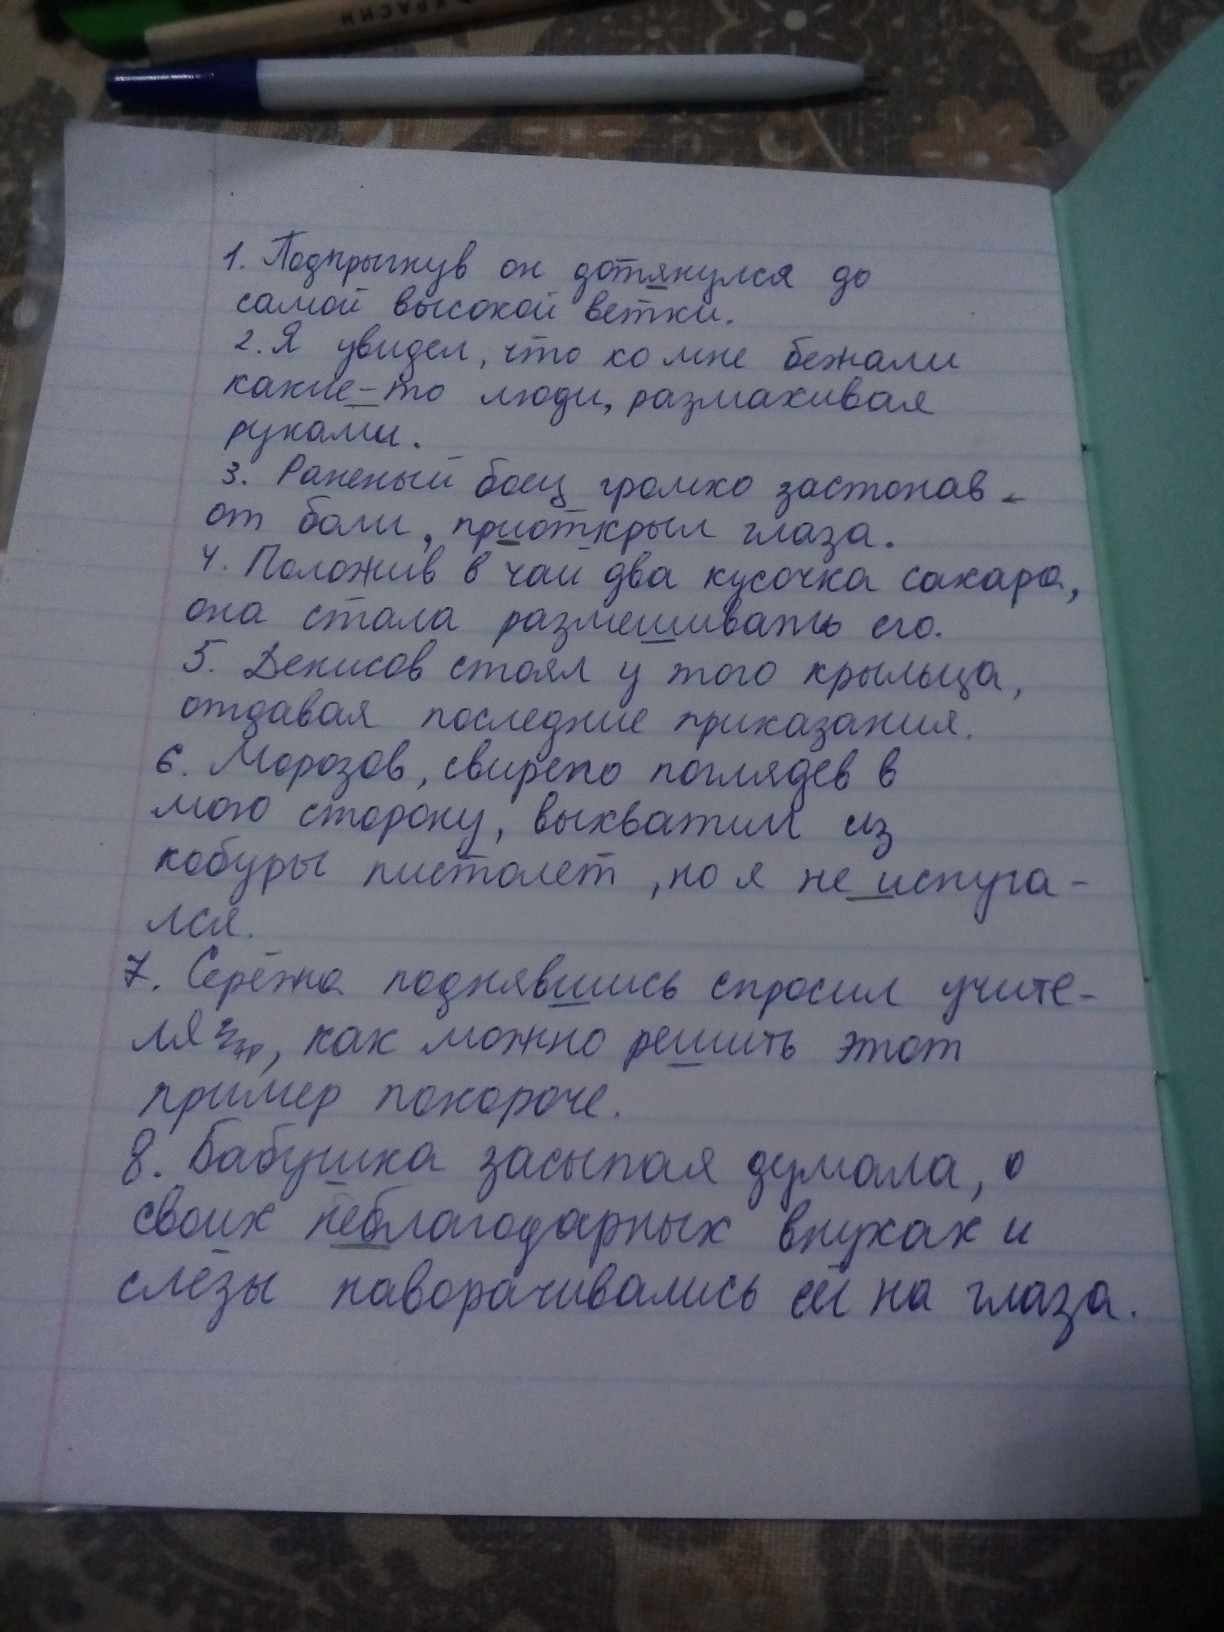 КРАСИН
1. Подпрыгнув он дотянулся до
самой высокой ветки.
2. Я увидел, что ко мне бежали
какие-то люди, размахивая
руками.
3. Раненый боец громко застонав
от боли, приоткрыл глаза.
4. Положив в чай два кусочка сахара,
она стала размешивать его.
5. Денисов стоял у того крыльца,
отдавая последние приказания.
6. Морозов, свирепо поглядев в
мою сторону, выхватил из
кобуры пистолет, но я не испуга-
лся.
7. Серёжа поднявшись спросил учите-
ля, как можно решить этот
пример покороче.
8. Бабушка засыпая думала, о
своих неблагодарных внуках и
слёзы наворачивались ей на глаза.